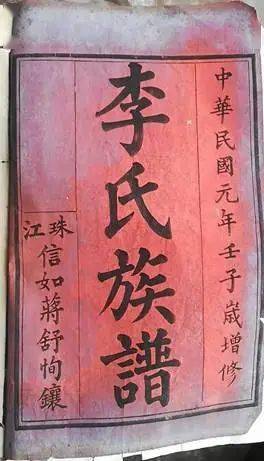 中華民國元年壬子歲增修
李氏族譜
珠江
信如蔣舒恂鑲